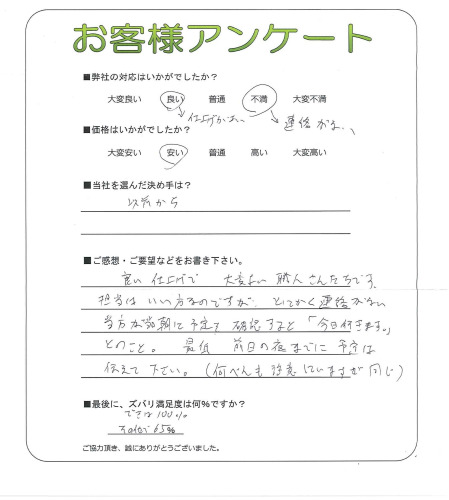 お客様アンケート
■弊社の対応はいかがでしたか?
大変良い 良い 普通 不満 大変不満
仕上げがよい 連絡がない
■価格はいかがでしたか?
大変安い 安い 普通 高い 大変高い
■当社を選んだ決め手は?
以前から
■ご感想・ご要望などをお書き下さい。
良い仕上げで 大変よい職人さんたちです。
担当はいい方なのですが、とにかく連絡がない
当方が 朝に予定を確認すると「今日行きます。」
とのこと。最低 前日の夜までに予定は
伝えて下さい。(何べんも注意していますが同じ)
■最後に、ズバリ満足度は何%ですか?
できは100%
その他で65%
ご協力頂き、誠にありがとうございました。